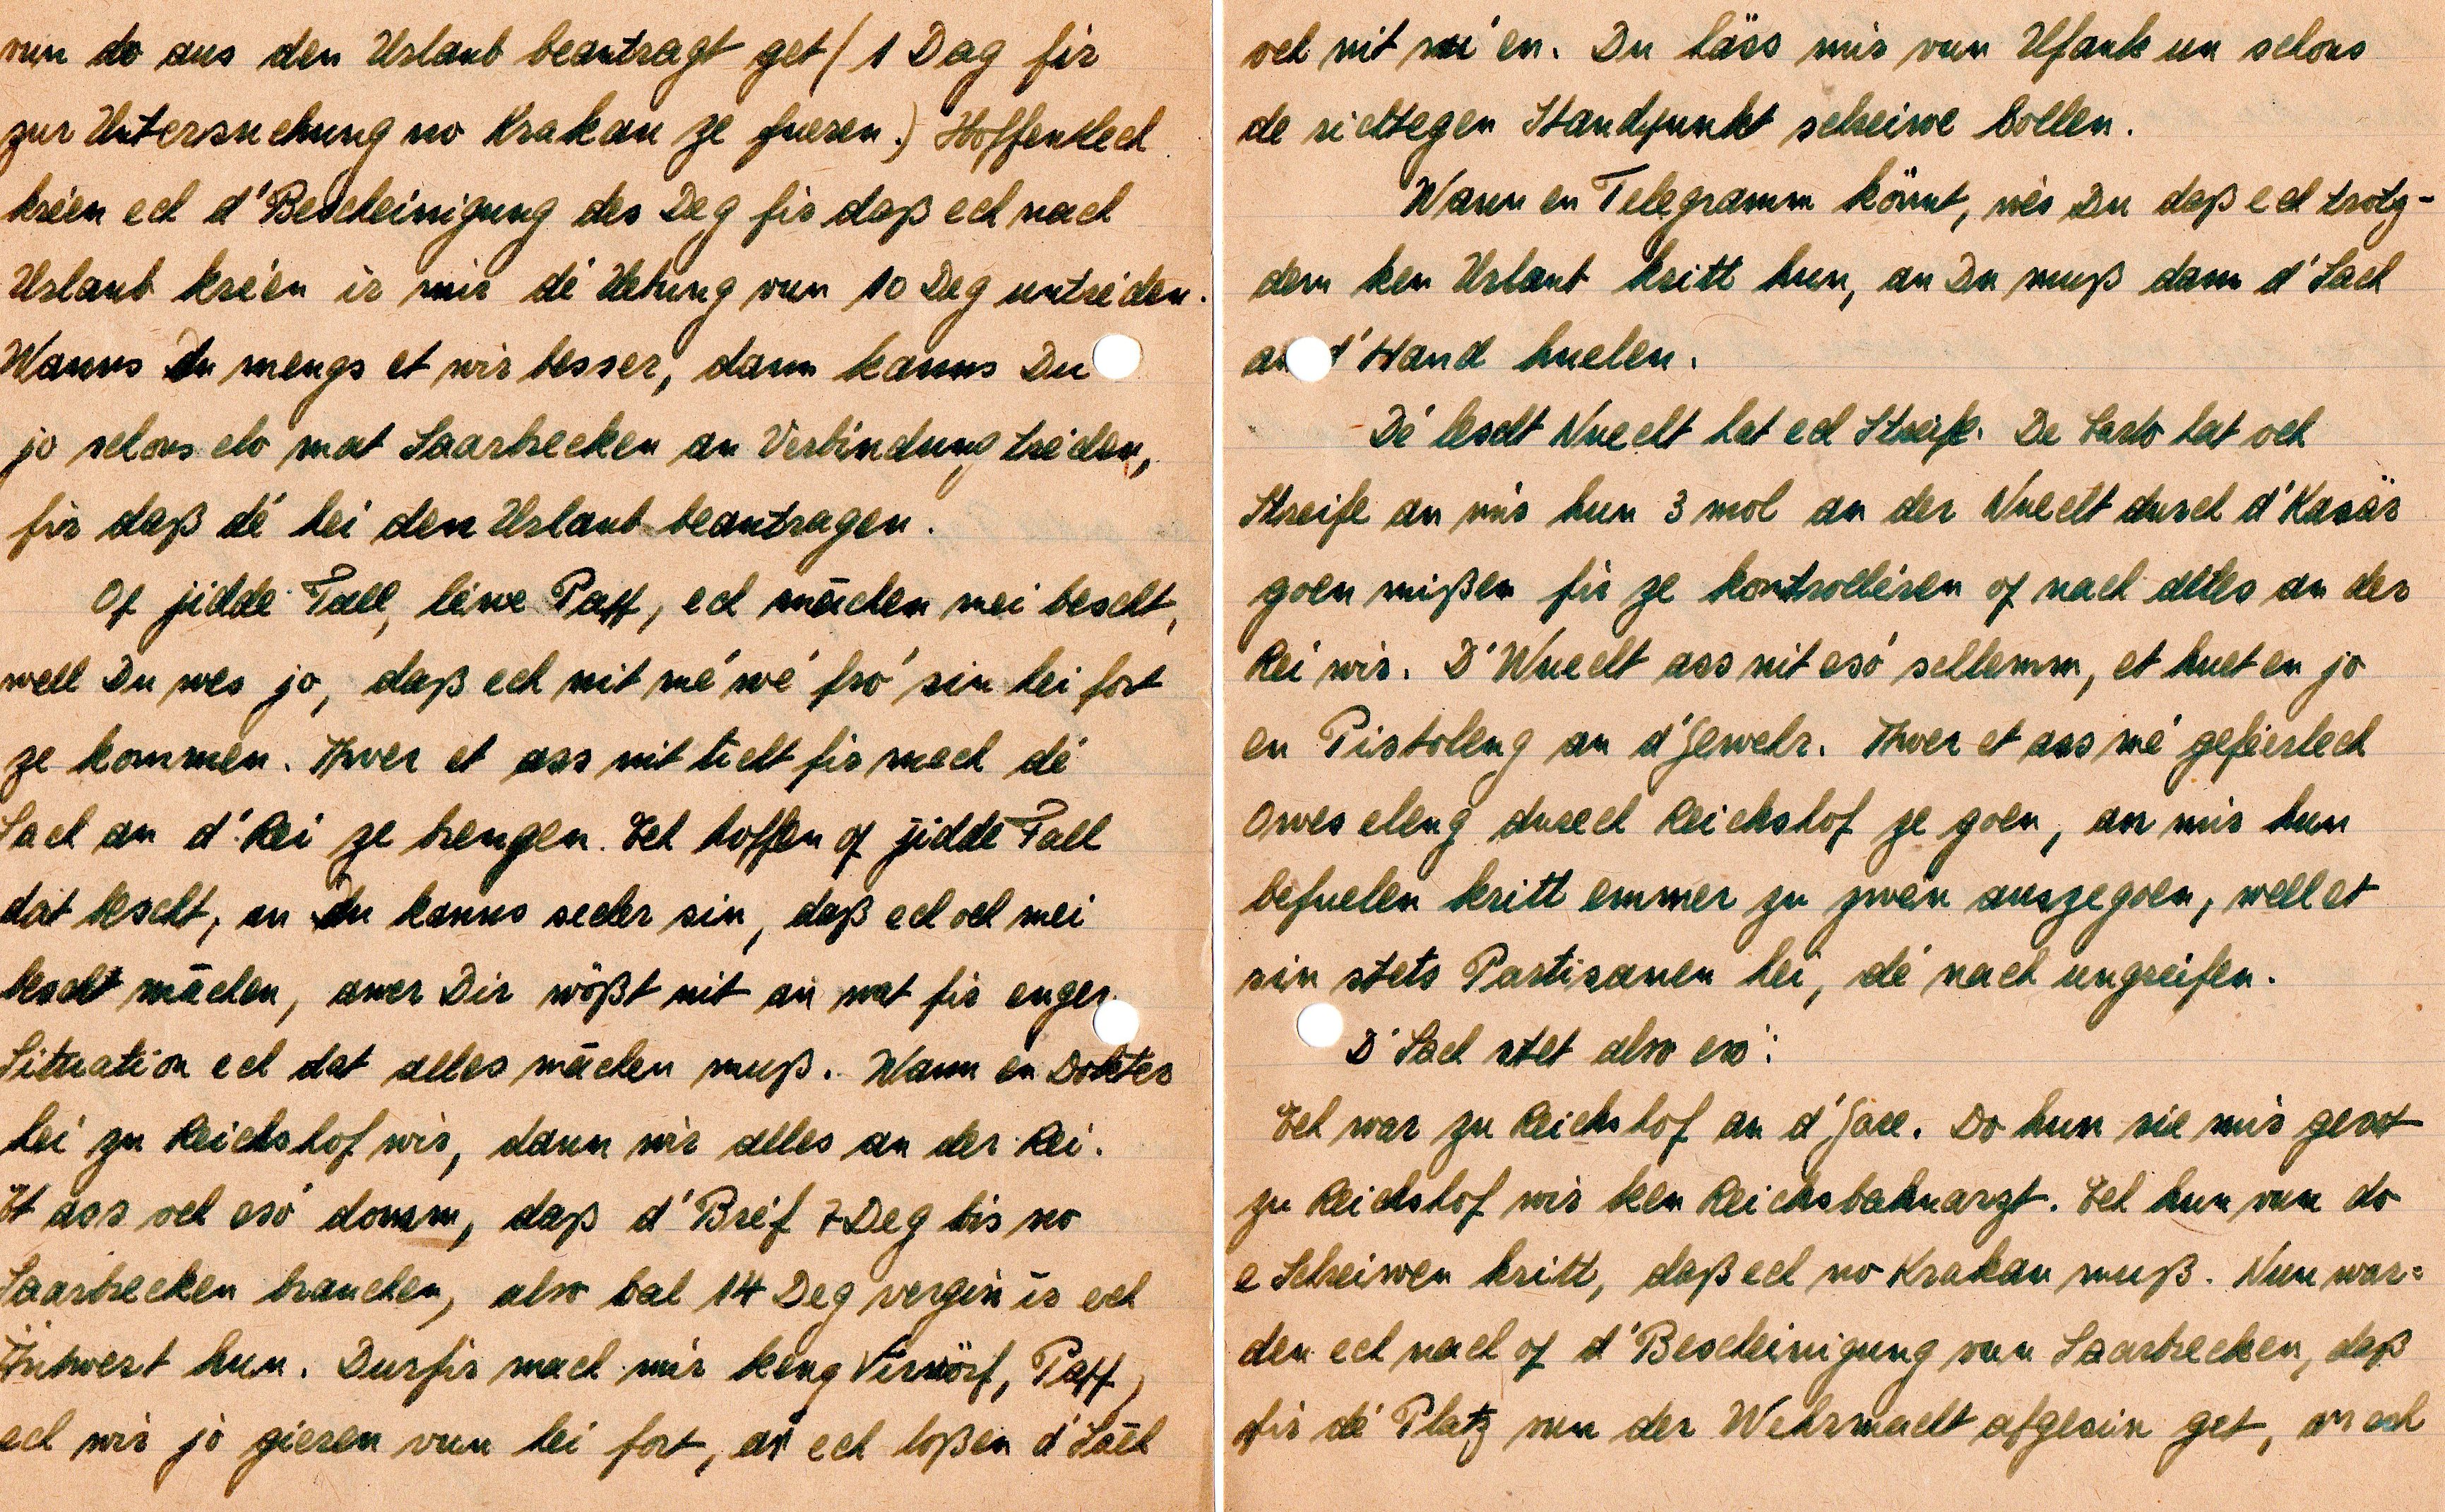 vun do aus den Urlaub beantragt get (1 Dag fir
zur Untersuchung no Krakau ze fueren.) Hoffentlech
kréien ech d'Bescheinigung des Deg fir daß ech nach
Urlaub kréien ir mir dé Übung vun 10 Deg untriéden.
Wanns Du mengs et wir besser, dann kanns Du
jo schons elo mat Saarbrecken an Verbindung triéden,
fir daß dé hei den Urlaub beantragen.
Of jidde Fall, léiwe Paff, ech mächen mei bescht,
well Du wes jo, daß ech nit mé wé fró sin hei fort
ze kommen. Awer et ass nit liicht fir mech dé
Sach an d'Rei ze brengen. Ech hoffen of jidde Fall
dat bescht, an Du kanns secher sin, daß ech och mei
bescht mächen, awer Dir wößt nit an wat fir enger
Situatión ech dat alles mächen muß. Wann en Dokter
hei zu Reichshof wir, dann wir alles an der Rei.
Et ass och esó domm, daß d'Bréf 7 Deg bis no
Saarbrecken brauchen, also bal 14 Deg vergin ir ech
Äntwert hun. Durfir mach mir keng Virwörf, Paff,
ech wir jo gieren vun hei fort, an ech loßen d'Sach
och nit rú'en. Du häss mir vun Ufank un schons
de richtegen Standpunkt schreiwe sollen.
Wann en Telegramm könnt, wés Du daß ech trotz-
dem ken Urlaub kritt hun, an Du muß dann d'Sach
an d'Hand huelen.
Dé lescht Nuecht hat ech Streife. De Carlo hat och
Streife an mir hun 3 mol an der Nuecht durch d'Kasär
goen mißen fir ze kontrolléiren of nach alles an der
Rei wir. D'Nuecht ass nit esó schlemm, et huet en jo
en Pistoleng an d'Gewehr. Awer et ass mé geféierlech
Owes eleng duerch Reichshof ze goen, an mir hun
befuelen kritt emmer zu zwén auszegoen, well et
sin stets Partisanen hei, dé nach ungreifen.
D'Sach stet also esó:
Ech war zu Reichshof an d'Gare. Do hun sie mir gesot
zu Reichshof wir ken Reichsbahnarzt. Ech hun vun do
e Schreiwen kritt, daß ech no Krakau muß. Nun war=
den ech nach of d'Bescheinigung vun Saarbrecken, daß
fir dé Platz vun der Wehrmacht ofgesin get, an ech